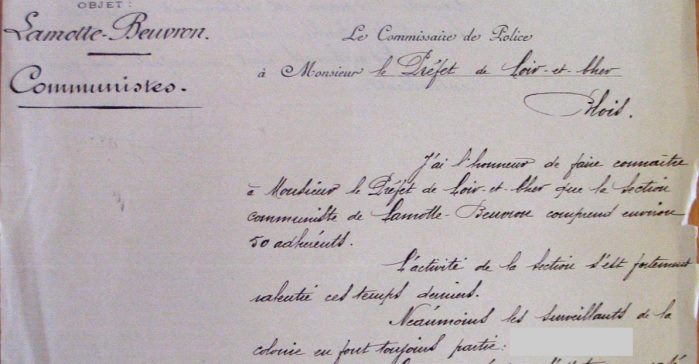 OBJET:
Lamotte-Beuvron.
Communistes.
Le Commissaire de Police
à Monsieur le Préfet de Loir-et-Cher
Blois.
J'ai l'honneur de faire connaître
à Monsieur le Préfet de Loir-et-Cher que la section
communiste de Lamotte-Beuvron comprend environ
50 adhérents.
L'activité de la section s'est fortement
ralentie ces temps derniers.
Néaumoins les surveillants de la
colonie en font toujours partie: